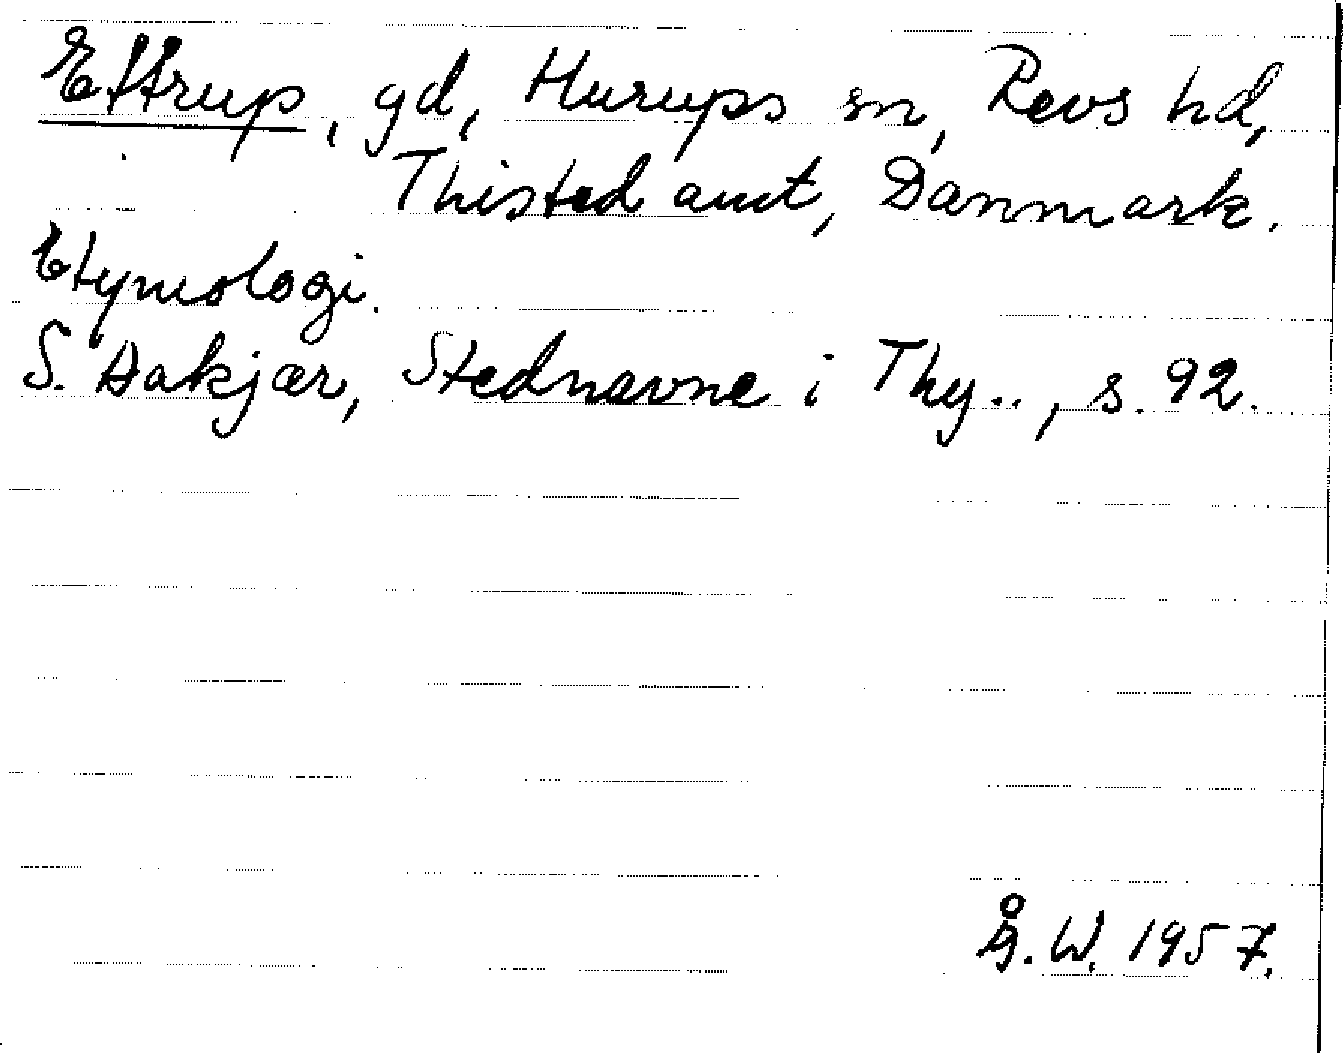 Ettrup, gd, Hurups sn, Revs hd,
Thisted amt, Danmark.
Etymologi.
S. Aakjær, Stednavne i Thy.., s. 92.
Å. W. 1957.